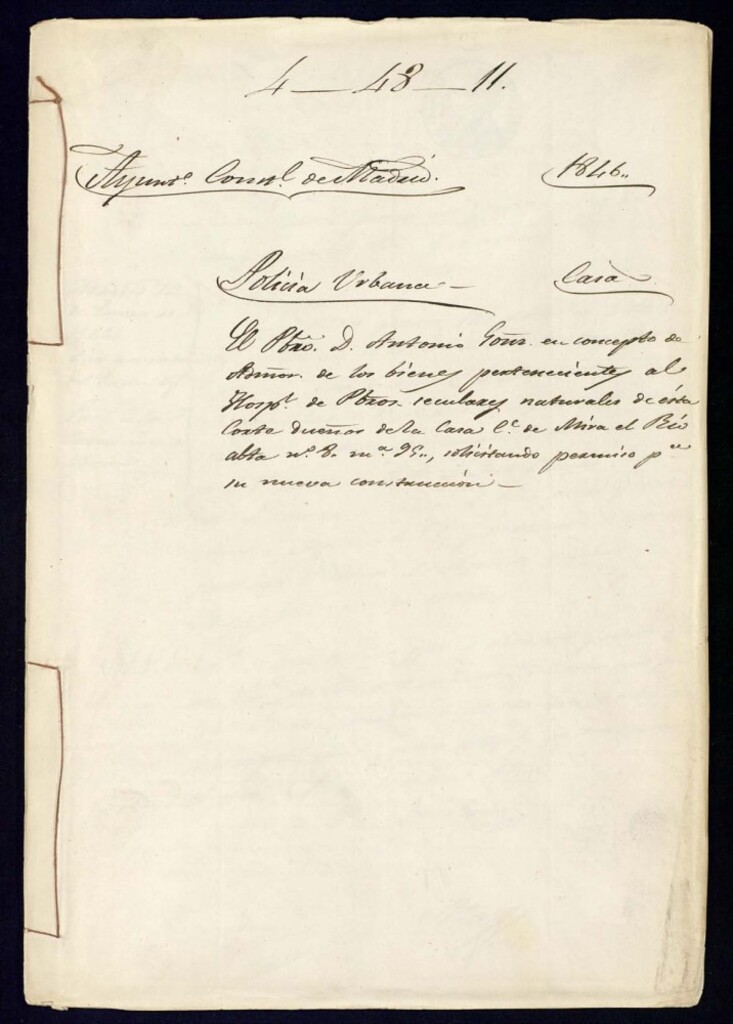 4 — 48 — 11.
Ayunto. Consl. de Madrid. 1846..
Policia Urbana — Casa
El Pbro. D. Antonio Gonz. en concepto de
Admor. de los bienes pertenecientes al
Hospl. de Pbros. seculares naturales de ésta
Corte dueños de la Casa Ce. de Mira el Rio
alta no. 8. ma. 95.., solicitando permiso pa.
su nueva construcción —